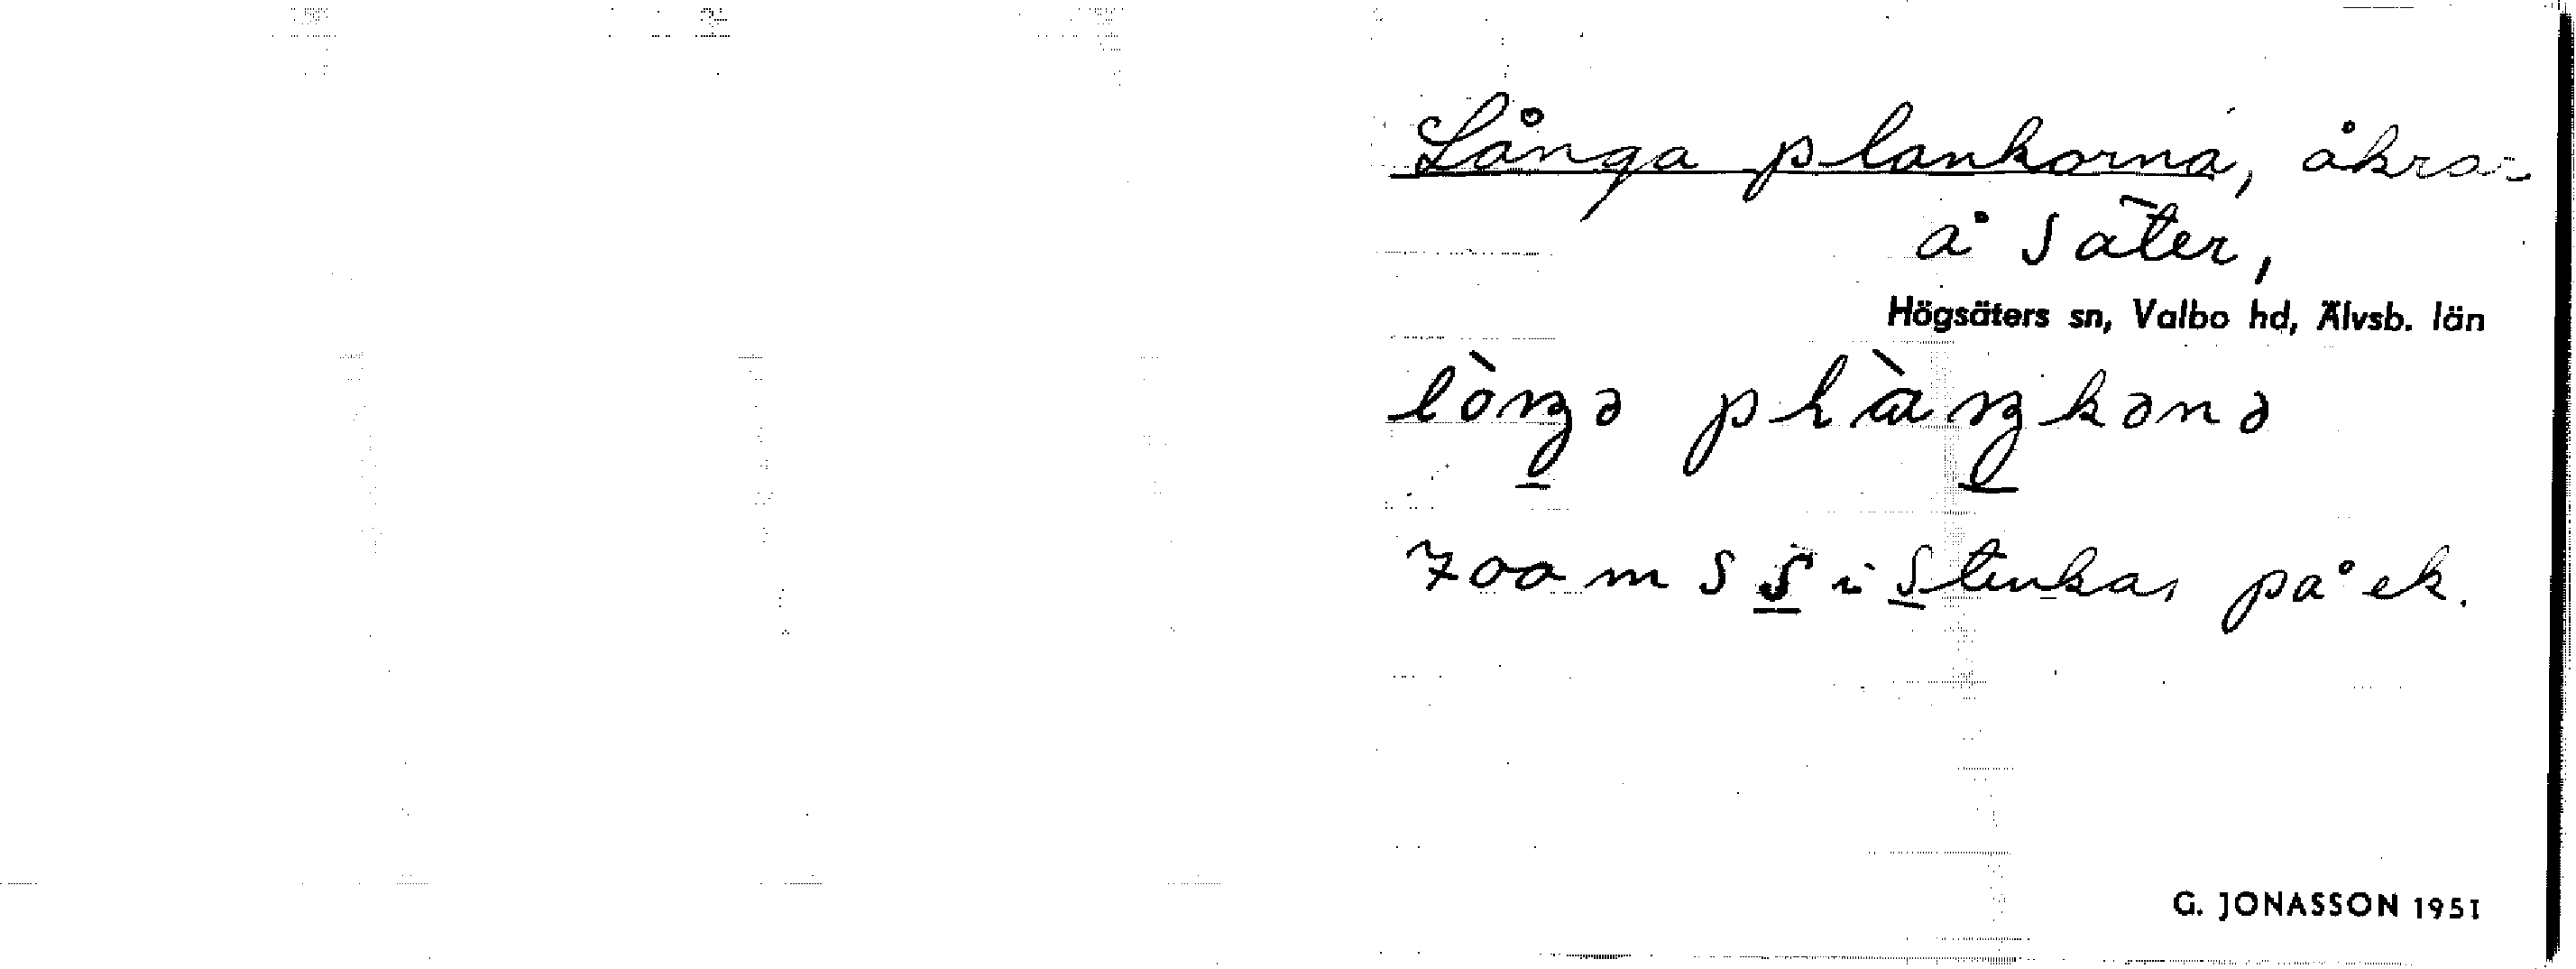 Långa plankorna, åkrar
å Säter,
Högsäters sn, Valbo hd, Älvsb. län
lòŋgə plàŋkənə
700 m S S i Stenkas på ek.
G. JONASSON 1951